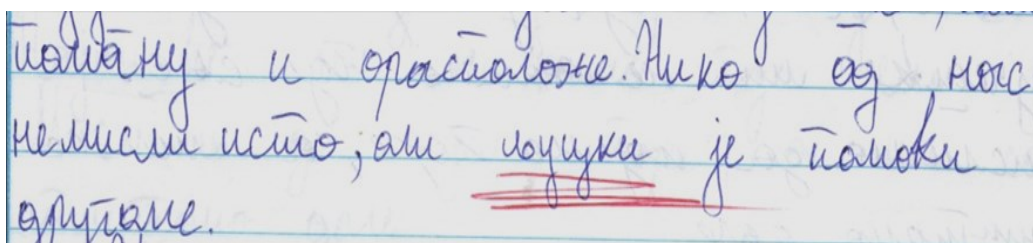 помогну и орасположе. Нико од нас
немисли исто, али љуцки је помоћи
другоме.